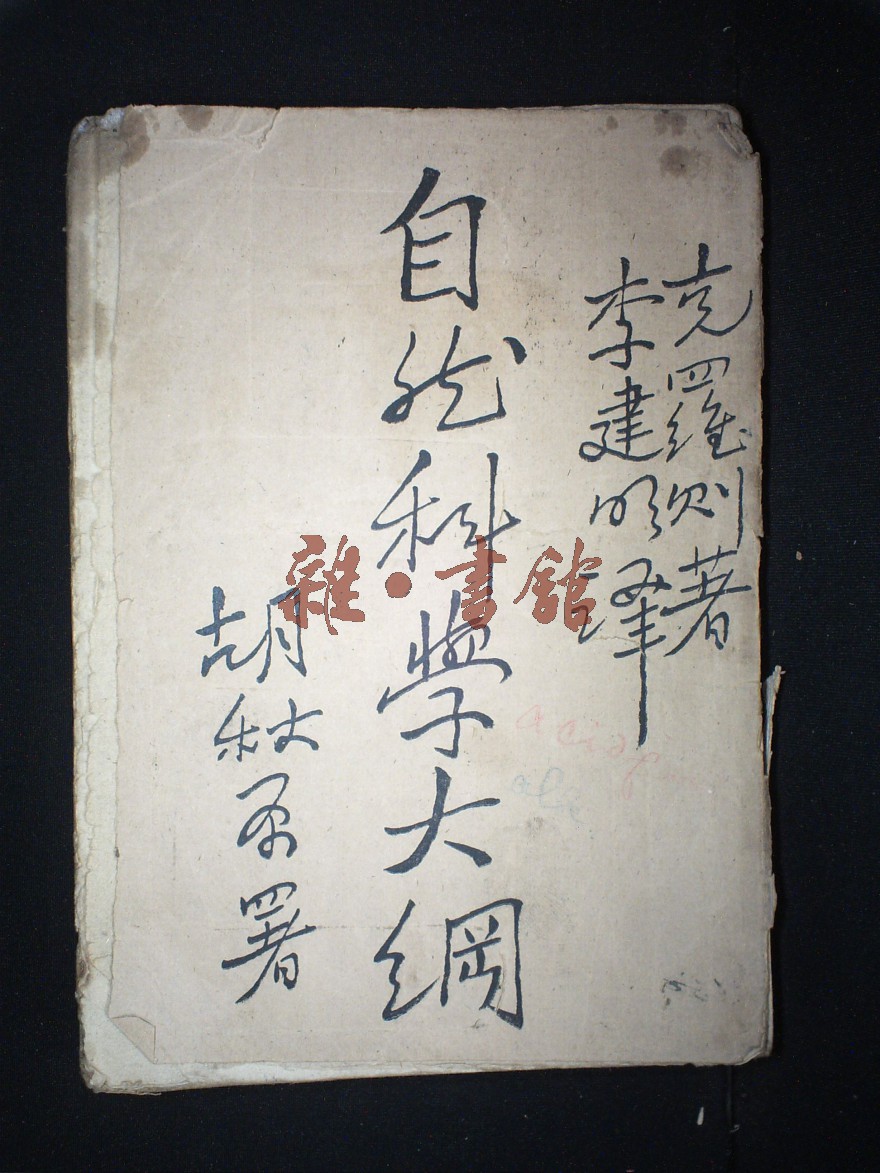 克羅則著
李建明譯
自然科學大綱
胡秋原署
雜·書館